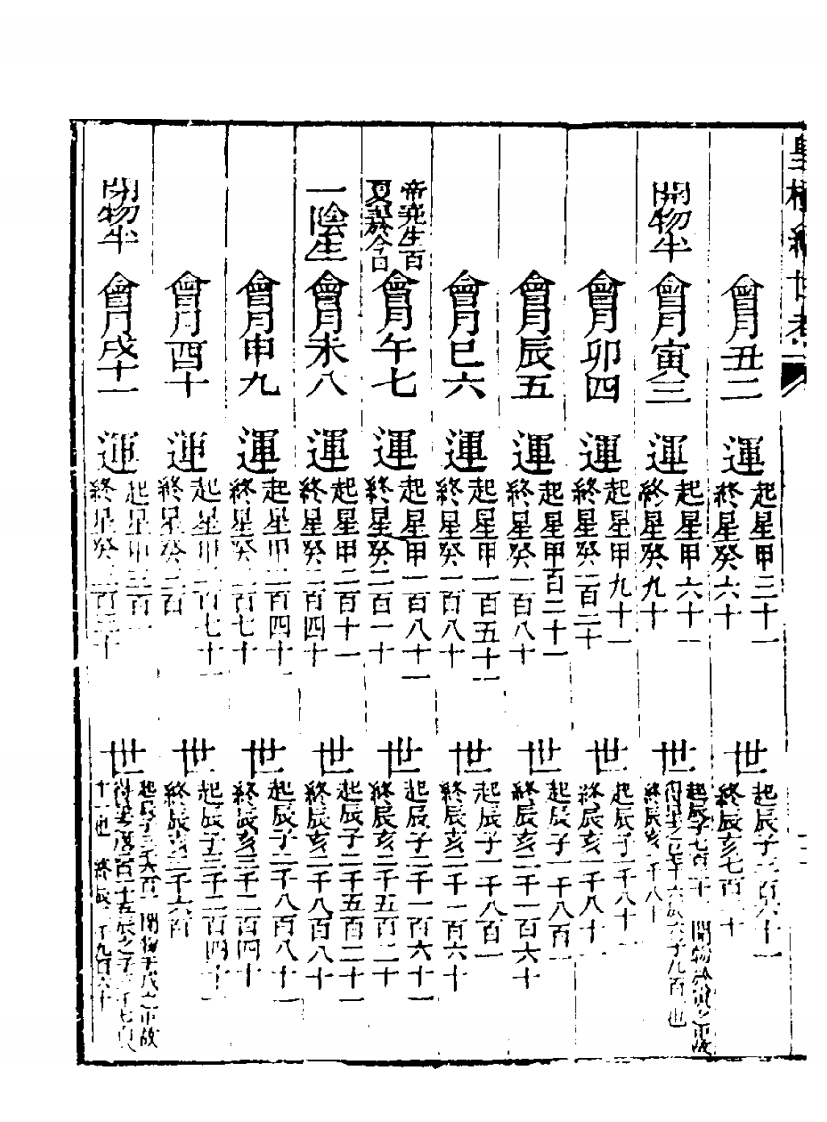 皇極經世考
會月丑二 運 起星甲三十一 終星癸六十 世 起辰子三百六十一 終辰亥七百二十
開物半 會月寅三 運 起星甲六十一 終星癸九十 世 起辰子七百二十一 開物 終辰亥一千八十
會月卯四 運 起星甲九十一 終星癸一百二十 世 起辰子一千八十一 終辰亥一千八十
會月辰五 運 起星甲百二十一 終星癸一百八十 世 起辰子一千八百一 終辰亥二千一百六十
會月巳六 運 起星甲一百五十一 終星癸一百八十 世 起辰子一千八百一 終辰亥二千一百六十
帝堯生百 夏 今日 會月午七 運 起星甲一百八十一 終星癸二百一十 世 起辰子二千一百六十一 終辰亥二千五百二十
一陰生 會月未八 運 起星甲二百十一 終星癸二百四十 世 起辰子二千五百二十一 終辰亥二千八百八十
會月申九 運 起星甲二百四十一 終星癸二百七十 世 起辰子二千八百八十一 終辰亥三千二百四十
會月酉十 運 起星甲二百七十一 終星癸三百 世 起辰子三千二百四十一 終辰亥三千六百
閉物半 會月戌十一 運 起星甲三百一 終星癸三百三十 世 起辰子三千六百一 閉物 之中故 十一也 終辰 千九百六十